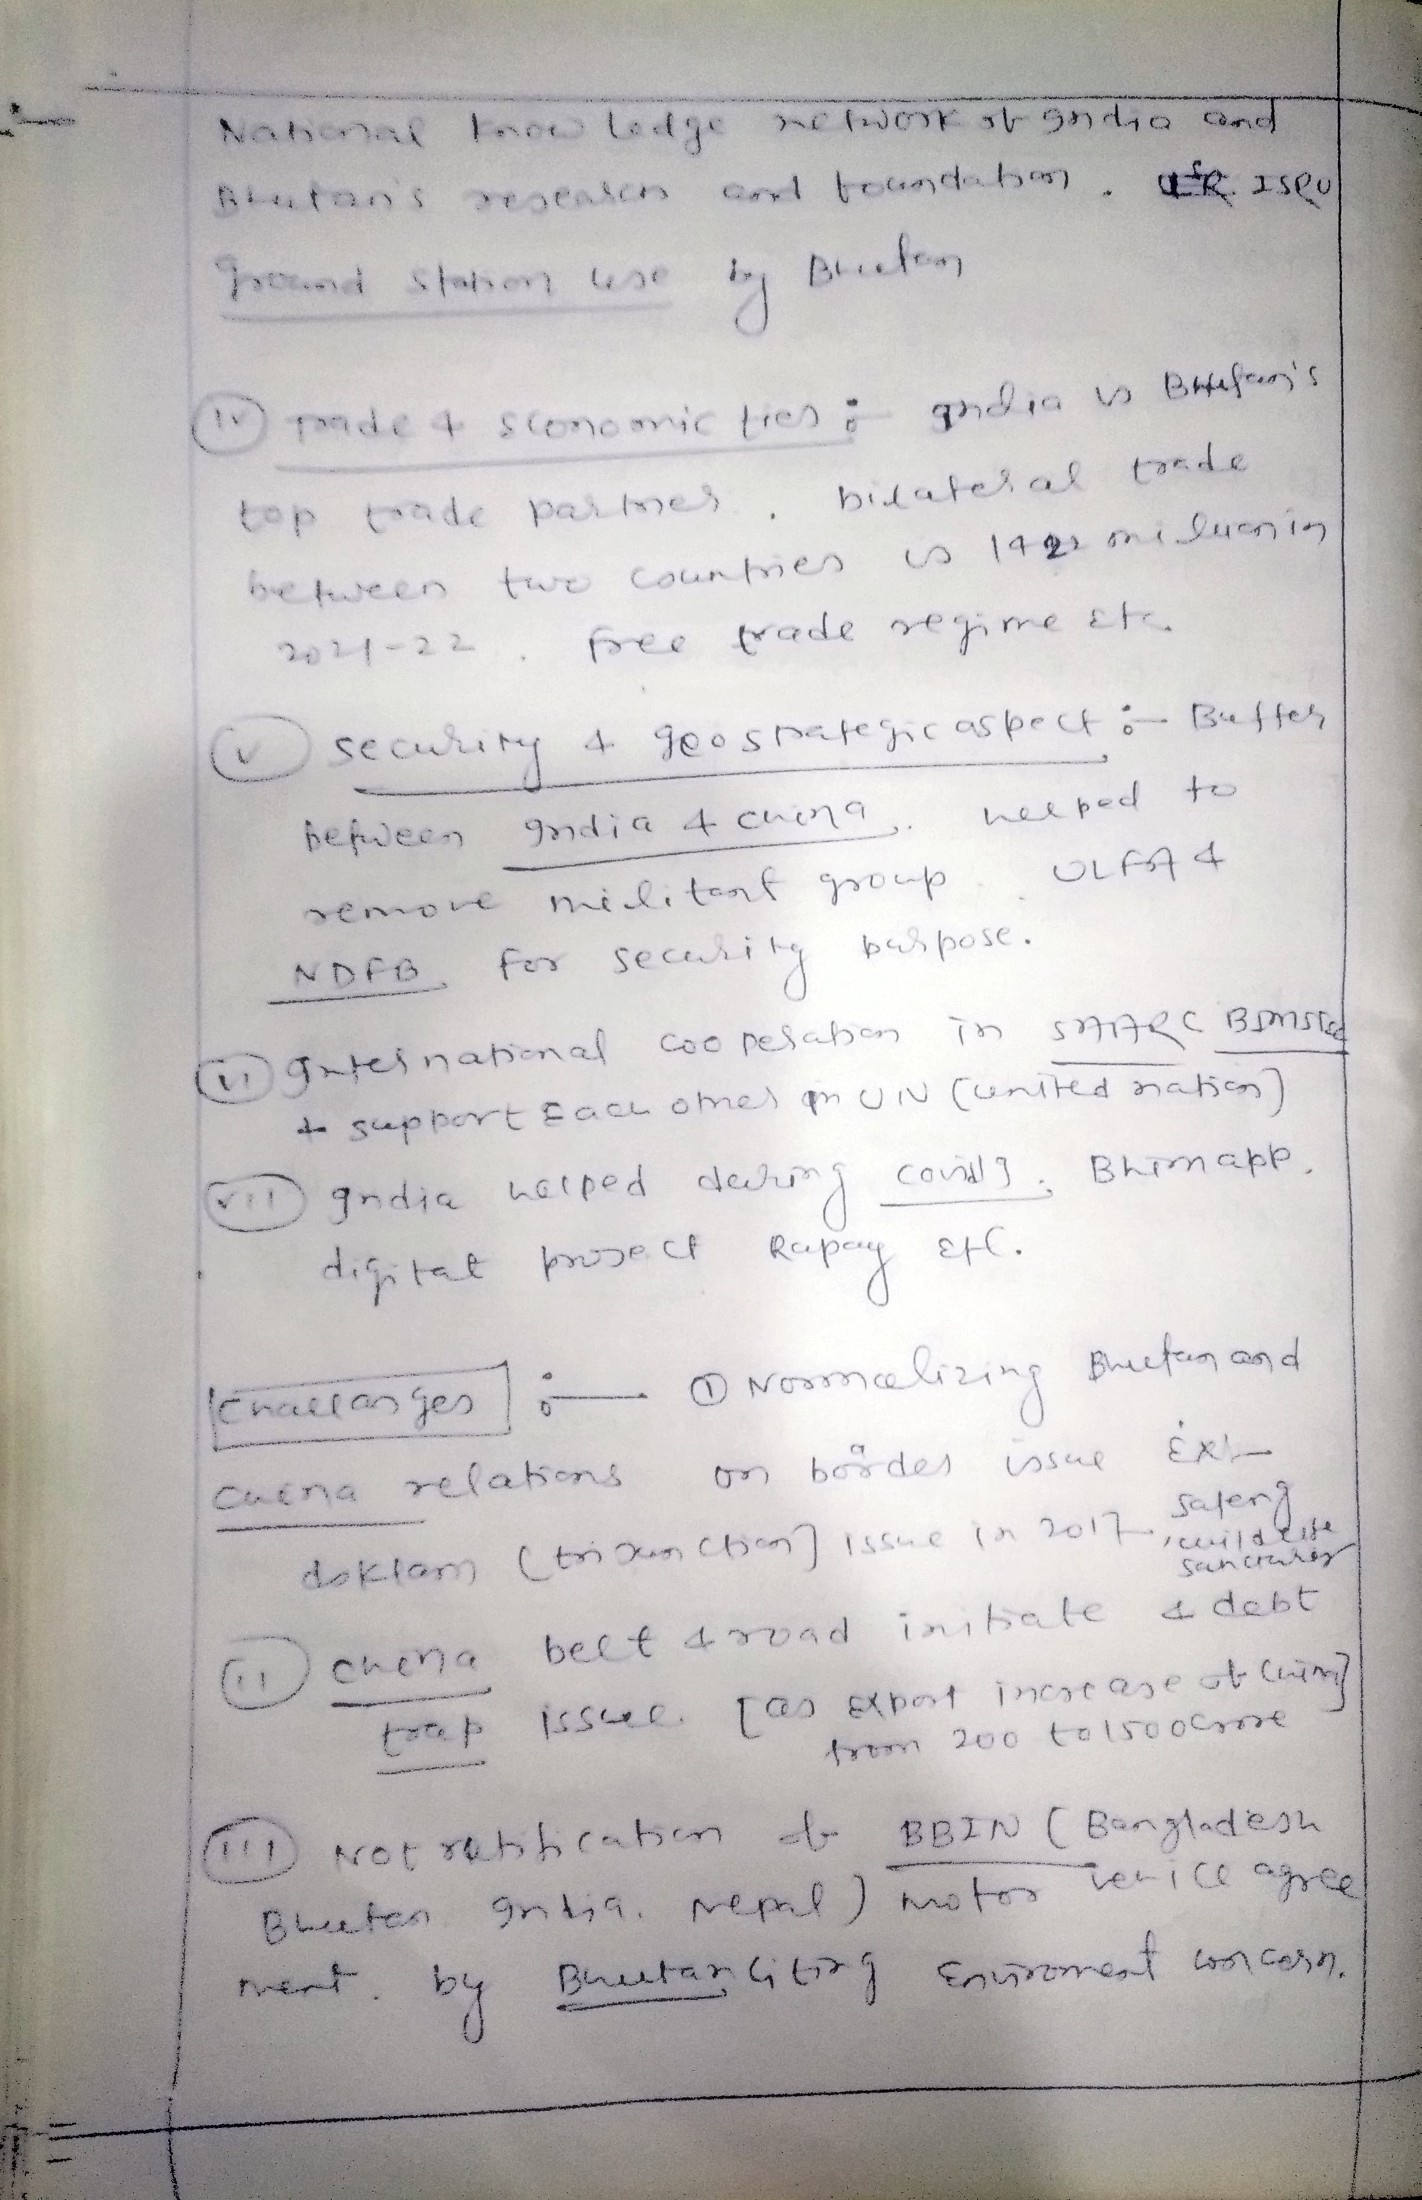 National Knowledge network of India and
Bhutan's research and foundation. ISRO
ground station use by Bhutan
(iv) Trade & Economic ties :- India is Bhutan's
top trade partner. bilateral trade
between two countries is 1422 million in
2021-22. free trade regime etc.
(v) security & geostrategic aspect :- Buffer
between India & China. helped to
remove militant group. ULFA &
NDFB for security purpose.
(vi) International cooperation in SAARC BIMSTEC
& support Each other in UN (united nation)
(vii) India helped during covid19. Bhim app.
digital project Rupay Etc.
Challanges :— (1) Normalizing Bhutan and
China relations on border issue Ex:-
doklam (trijunction) issue in 2017, sateng
wildlife
sanctuary
(ii) China belt & road initiate & debt
trap issue. [as export increase of China]
from 200 to 1500 crore
(iii) Not ratification of BBIN (Bangladesh
Bhutan India. Nepal) Motor vehicle agree
ment. by Bhutan citing Enviroment concern.